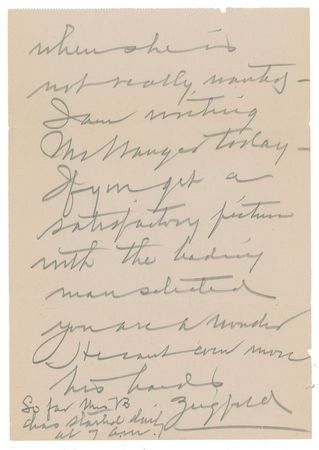 when she is
not really wanted —
I am writing
Mr Wanger today —
If you get a
satisfactory picture
with the leading
man selected
you are a wonder
He cant even move
his hands
Ziegfeld
So far Miss B.
has started daily
at 7 a.m.!